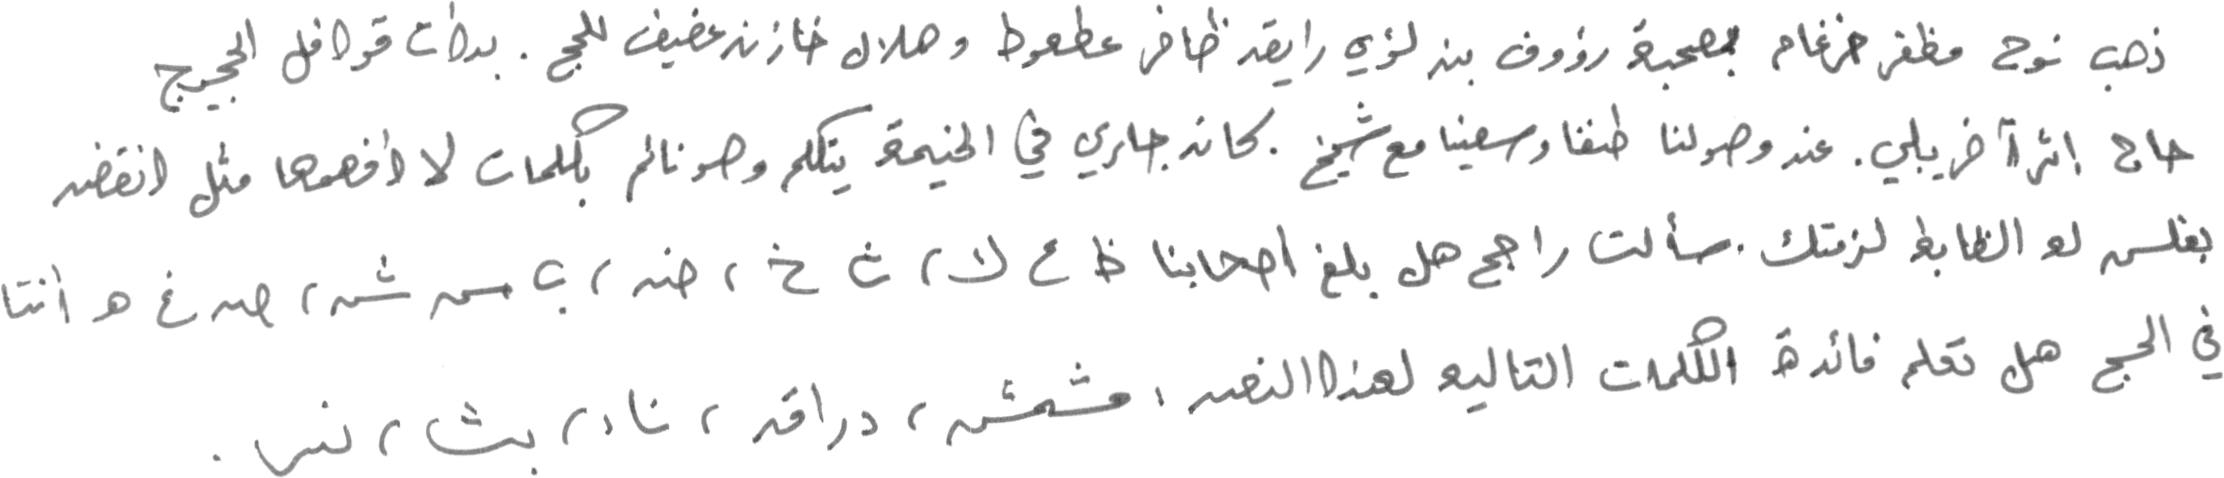 ذهب نوح مظفر ضرغام بصحبة رؤوف بن لؤي رايق ظافر عطعوط وهلال خازن عفيف للحج . بدأت قوافل الحجيج
حاج إثر آخر يلبي . عند وصولنا طفنا وسعينا مع شيخ . كان جاري في الخيمة يتكلم وهو نائم بكلمات لا أفهمها مثل انقض
بغلس لو الظابط لزمتك . سألت راجح هل بلغ أصحابنا ظ ع لا ، ث خ ، ض ، ب س ش ، ص غ ه أننا
في الحج هل تعلم فائدة الكلمات التاليه لهذا النص : مشمش ، دراق ، ناد ، بث ، نس .